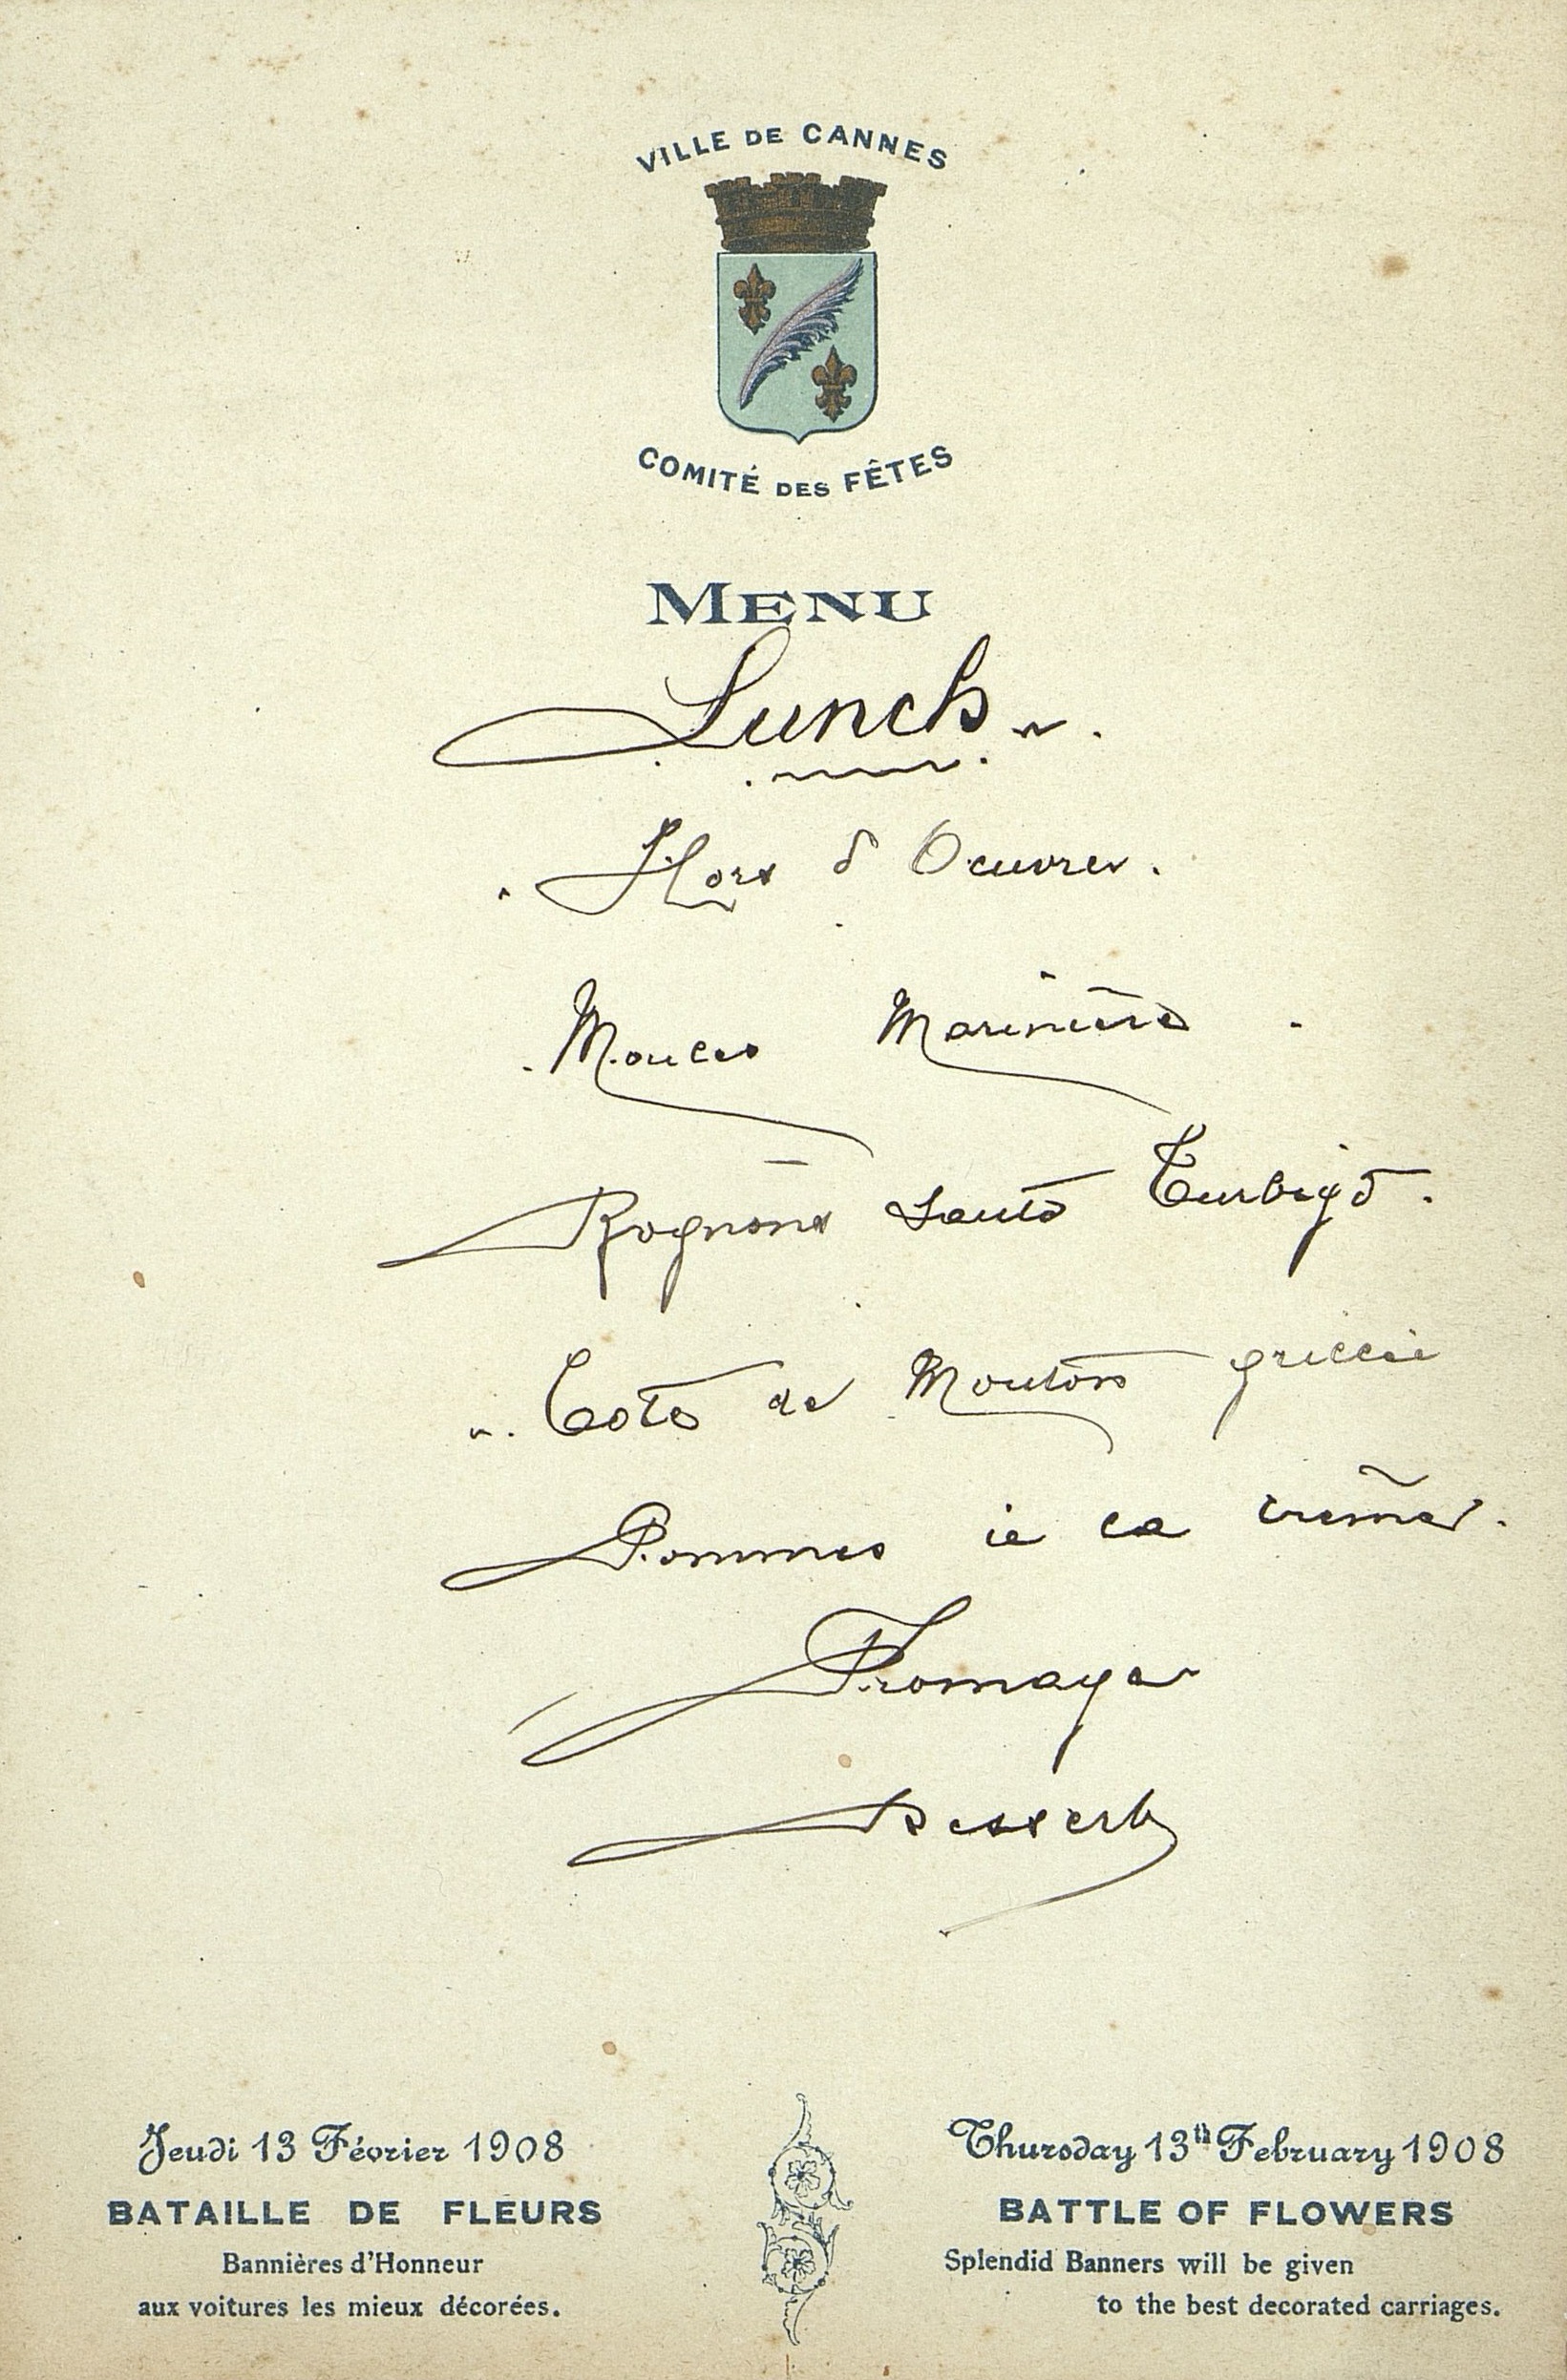 VILLE DE CANNES
COMITÉ DES FÊTES
MENU
Lunch
Hors d'Oeuvres.
Moules Marinière.
Rognons Sautés Turbigo.
Côte de Mouton grillée
Pommes à la crème.
Fromage
Dessert
Jeudi 13 Février 1908
BATAILLE DE FLEURS
Bannières d'Honneur
aux voitures les mieux décorées.
Thursday 13th February 1908
BATTLE OF FLOWERS
Splendid Banners will be given
to the best decorated carriages.